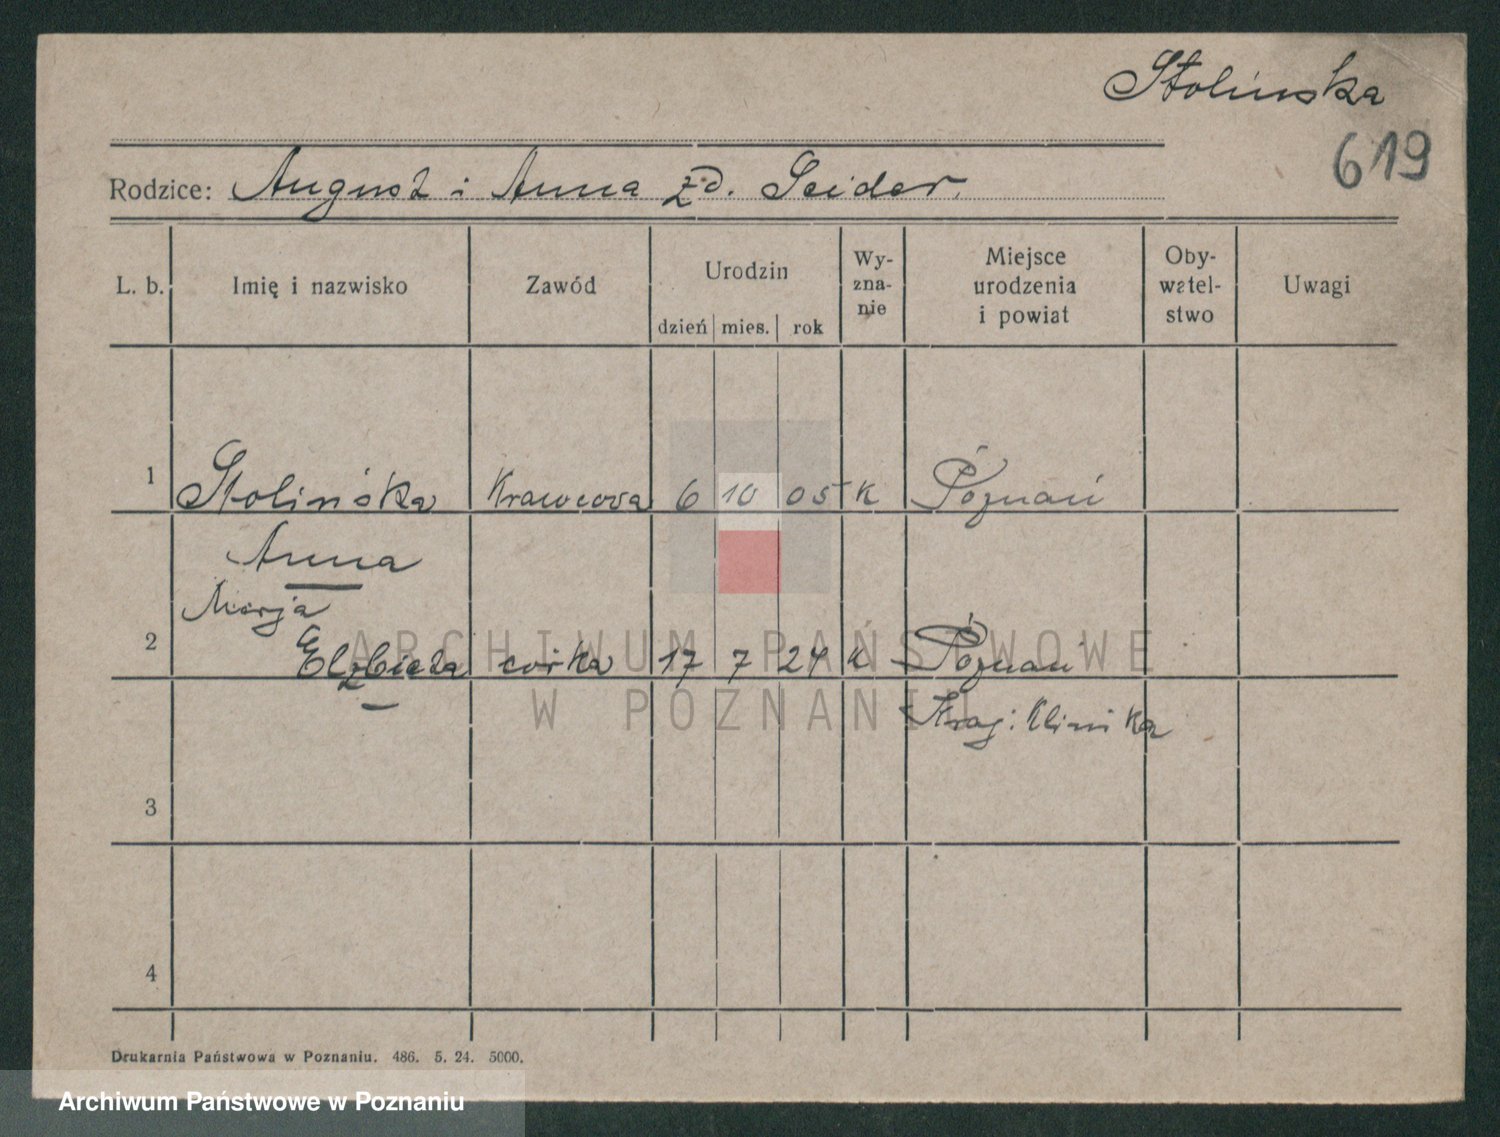 Stolinska
619
Rodzice: August i Anna zd. Seider.
L. b. Imię i nazwisko Zawód Urodzin dzień mies. rok Wy- zna- nie Miejsce urodzenia i powiat Oby- watel- stwo Uwagi
1 Stolińska Krawcowa 6 10 05 K Poznań
Anna
Marja
2 Elżbieta córka 17 7 24 K Poznań
Kraj: Klinika
3
4
Drukarnia Państwowa w Poznaniu. 486. 5. 24. 5000.
ARCHIWUM PAŃSTWOWE
W POZNANIU
Archiwum Państwowe w Poznaniu